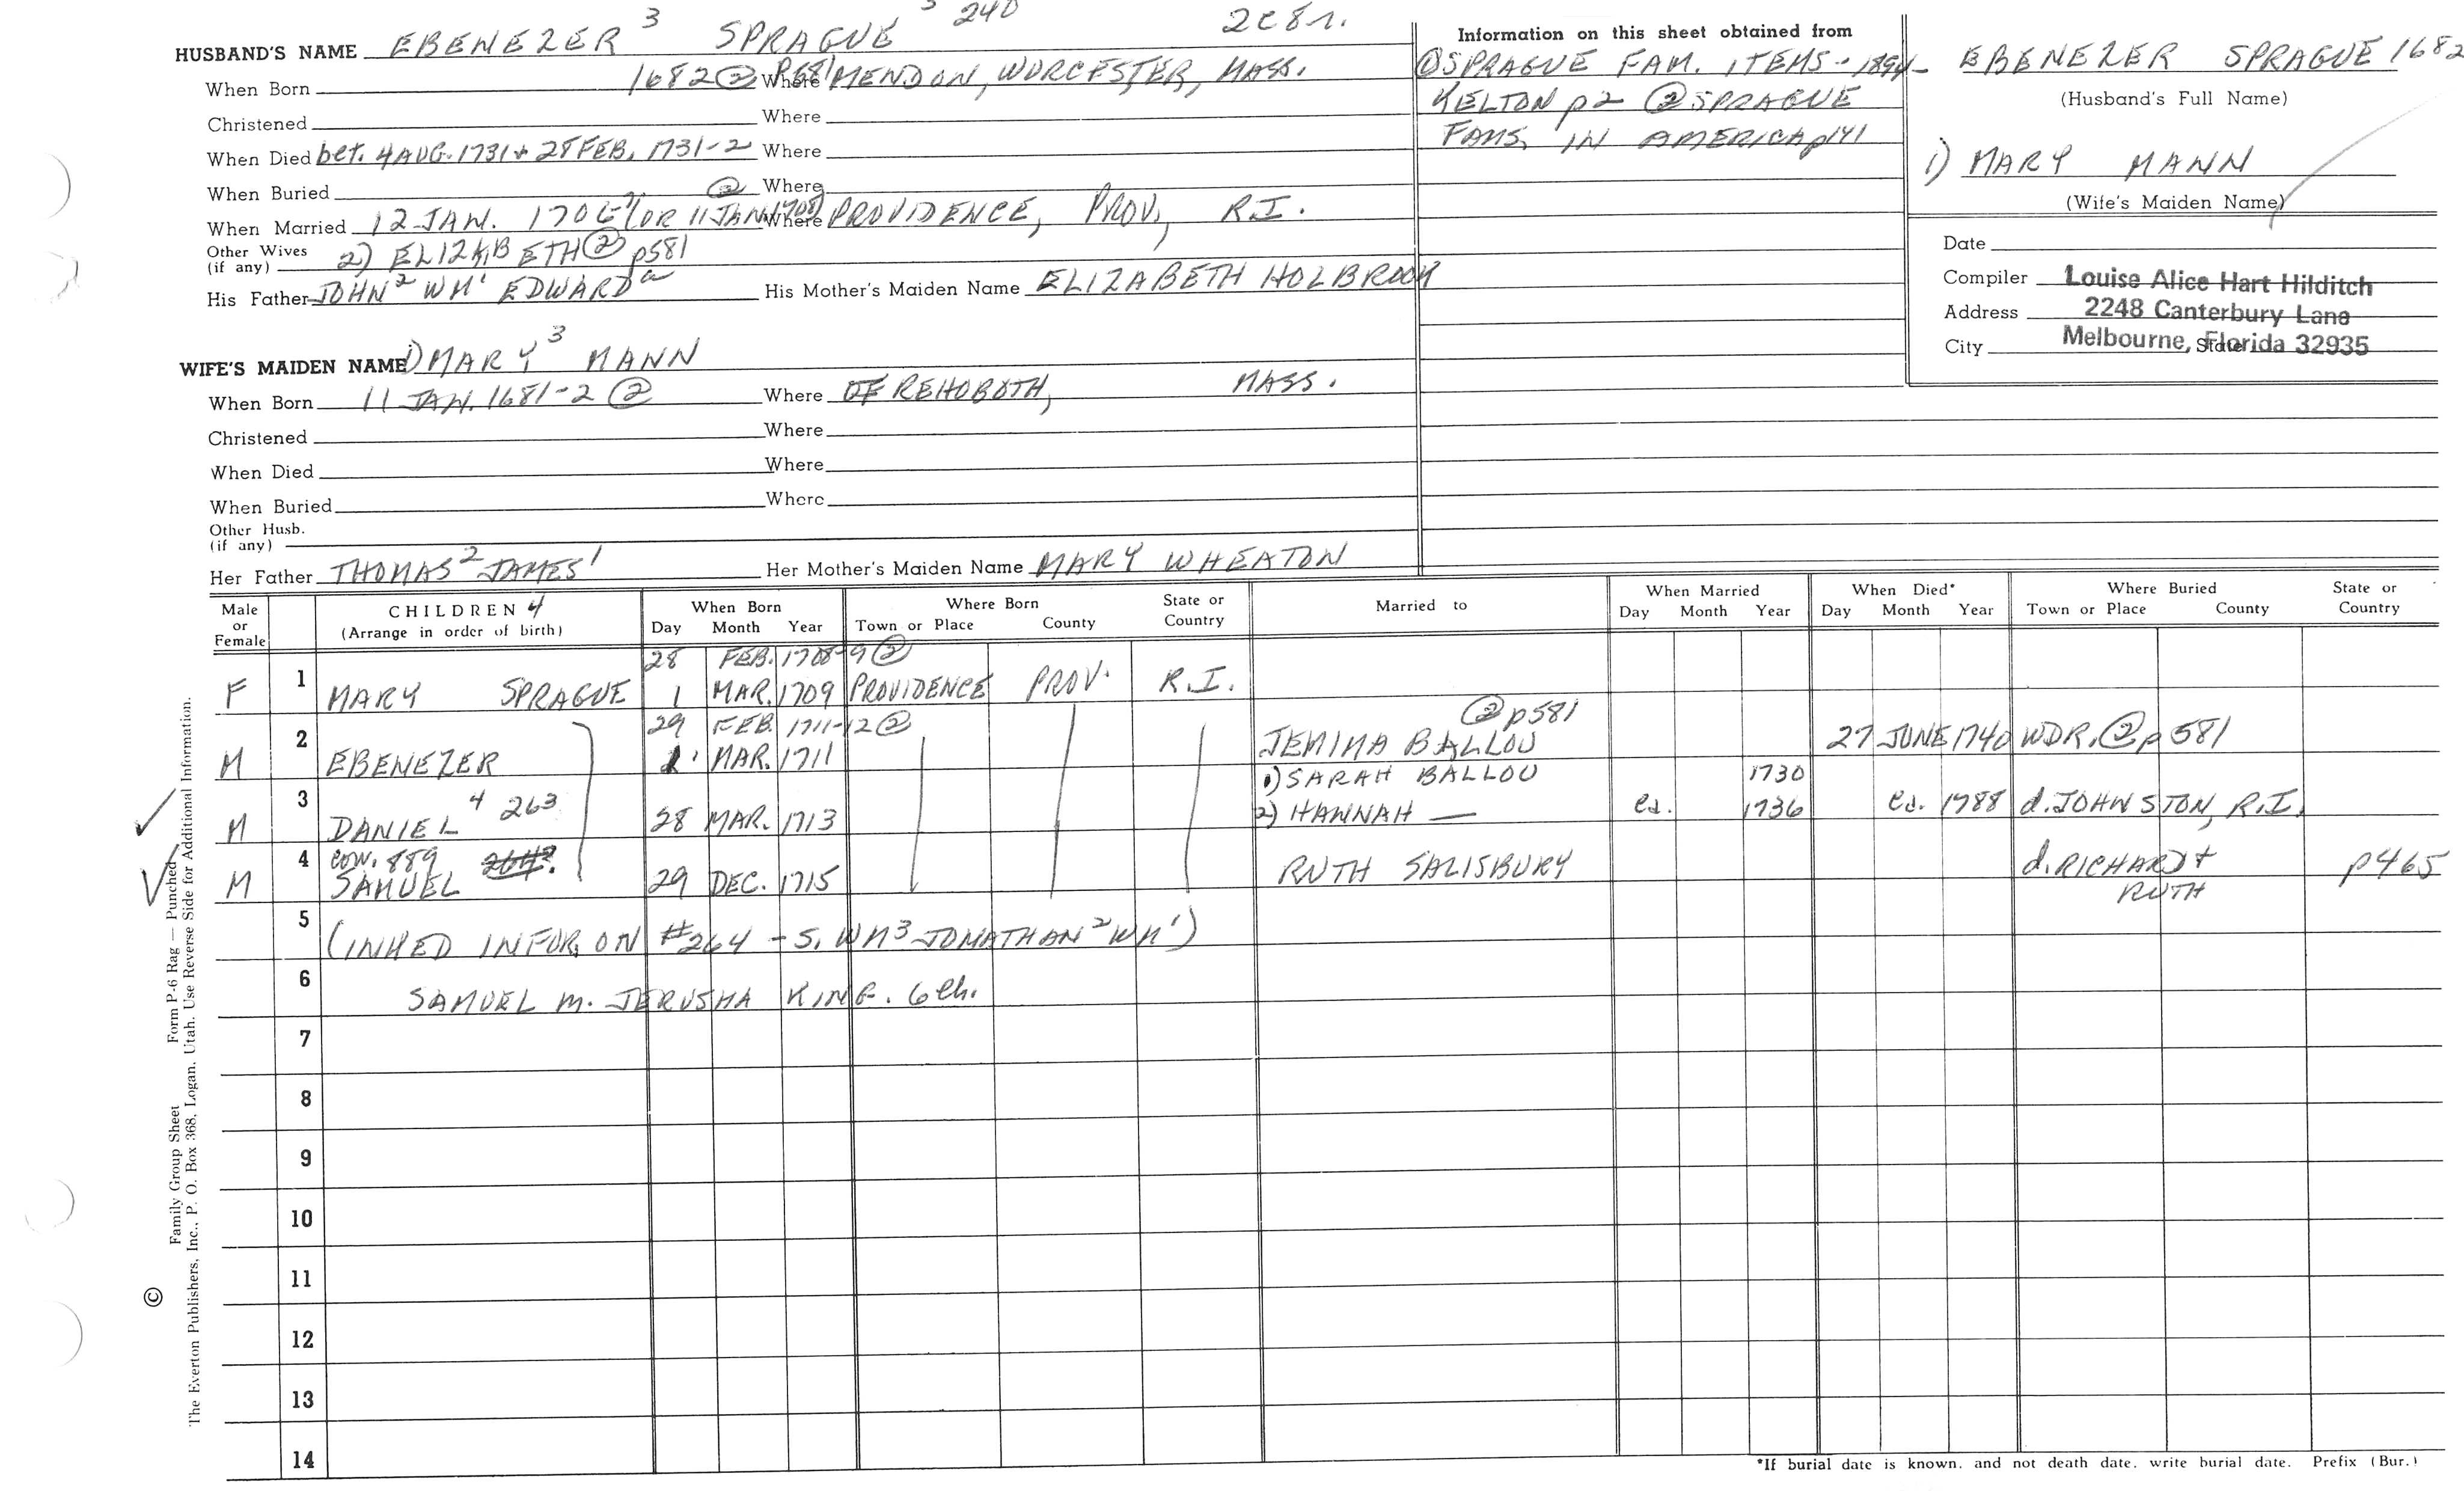 3 240 2c8r.
HUSBAND'S NAME EBENEZER 3 SPRAGUE
When Born 1682 ② p581 Where MENDON, WORCESTER, MASS.
Christened Where
When Died bet. 4 AUG. 1731 + 28 FEB, 1731-2 Where
When Buried Where
When Married 12 JAN. 1706 (OR 11 JAN 1708) ② Where PROVIDENCE, PROV, R.I.
Other Wives
(if any) 2) ELIZABETH ② p581
His Father JOHN 2 WM 1 EDWARD a His Mother's Maiden Name ELIZABETH HOLBROOK
WIFE'S MAIDEN NAME 1) MARY 3 MANN
When Born 11 JAN. 1681-2 ② Where OF REHOBOTH, MASS.
Christened Where
When Died Where
When Buried Where
Other Husb.
(if any)
Her Father THOMAS 2 JAMES 1 Her Mother's Maiden Name MARY WHEATON
Information on this sheet obtained from
①SPRAGUE FAM. ITEMS - 1894-
KELTON p2 ②SPRAGUE
FAMS. IN AMERICA p141
EBENEZER SPRAGUE 1682
(Husband's Full Name)
1) MARY MANN
(Wife's Maiden Name)
Date
Compiler Louise Alice Hart Hilditch
Address 2248 Canterbury Lane
City State Melbourne, Florida 32935
Male or Female CHILDREN 4 (Arrange in order of birth) When Born Day Month Year Where Born Town or Place County State or Country Married to When Married Day Month Year When Died* Day Month Year Where Buried Town or Place County State or Country
28 FEB. 1708-9 ②
F 1 MARY SPRAGUE 1 MAR. 1709 PROVIDENCE PROV. R.I.
29 FEB. 1711-12 ② ② p581
M 2 EBENEZER 1 MAR. 1711 JEMIMA BALLOU 27 JUNE 1740 WDR. ② p581
1) SARAH BALLOU 1730
M 3 DANIEL 4 263 28 MAR. 1713 2) HANNAH — ca. 1736 ca. 1788 d. JOHNSTON, R.I.
CON. 889 264?
M 4 SAMUEL 29 DEC. 1715 RUTH SALISBURY d. RICHARD + RUTH p465
5 (INHED INFOR. ON #264 - S. WM 3 JONATHAN 2 WM 1)
6 SAMUEL m. JERUSHA KING. 6 ch.
7
8
9
10
11
12
13
14
*If burial date is known, and not death date, write burial date. Prefix (Bur.)
© Family Group Sheet Form P-6 Rag — Punched
The Everton Publishers, Inc., P. O. Box 368, Logan, Utah. Use Reverse Side for Additional Information.